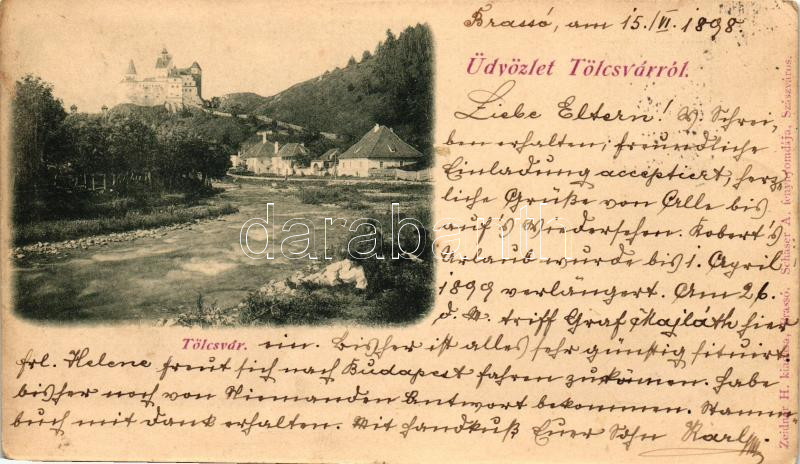 Brassó, am 15./VI. 1898.
Üdvözlet Tölcsvárról.
Liebe Eltern! W. Schrei-
ben erhalten, freundliche
Einladung acceptiert, herz-
liche Grüße von Alle bis
auf's Wiedersehen. Robert's
Urlaub wurde bis 1. April
1899 verlängert. Am 26.
d. M. triff Graf Majláth hier
Tölcsvár.
ein. Bisher ist alles sehr günstig situirt
Frl. Helene freut sich nach Budapest fahren zu können. Habe
bisher noch von Niemanden Antwort bekommen. Stamm-
buch mit Dank erhalten. Mit Handkuß Euer Sohn Karl
Zeidner H. kiadása, Brassó. Schäser A. fénynyomdája, Szászváros.
darabanth